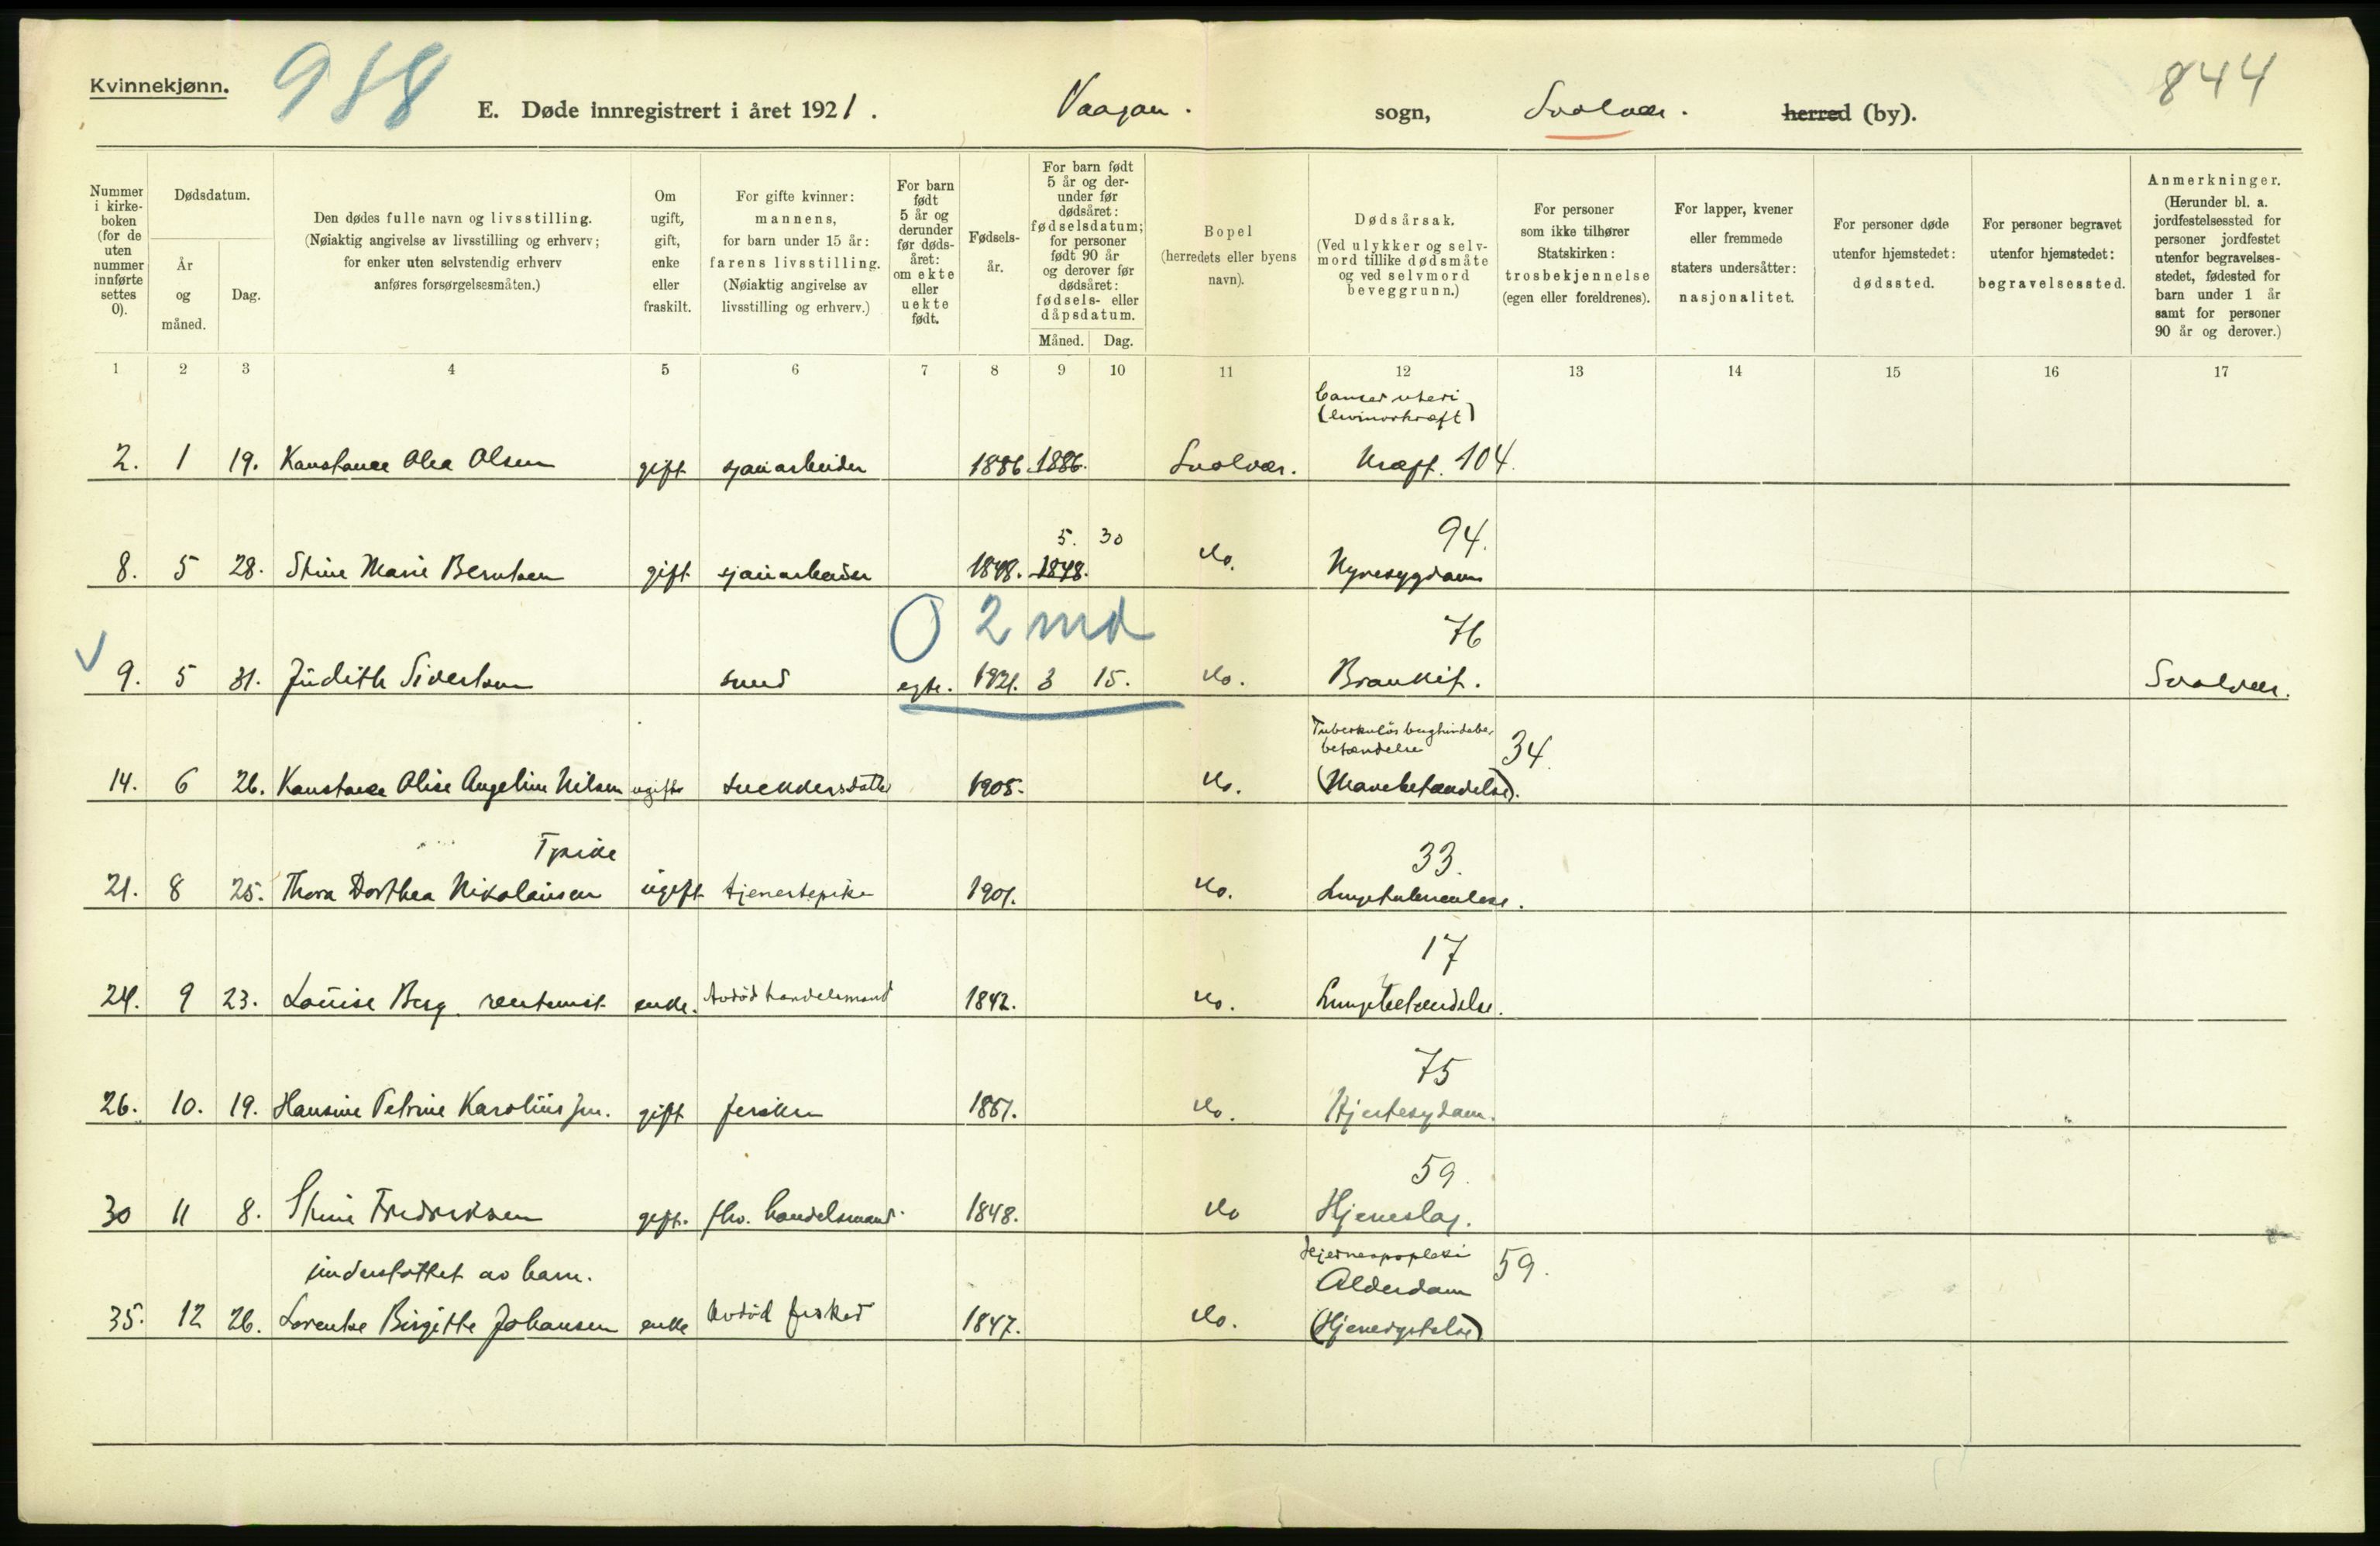 Kvinnekjønn.
988
844
E. Døde innregistrert i året 1921. Vaagan. sogn, Svolvær. herred (by).
Nummer i kirkeboken (for de uten nummer innførte settes 0).
Dødsdatum.
År og måned.
Dag.
Den dødes fulle navn og livsstilling.
(Nøiaktig angivelse av livsstilling og erhverv; for enker uten selvstendig erhverv anføres forsørgelsesmåten.)
Om ugift, gift, enke eller fraskilt.
For gifte kvinner: mannens, for barn under 15 år: farens livsstilling.
(Nøiaktig angivelse av livsstilling og erhverv.)
For barn født 5 år og derunder før dødsåret: om ekte eller uekte født.
Fødselsår.
For barn født 5 år og derunder før dødsåret: fødselsdatum; for personer født 90 år og derover før dødsåret: fødsels- eller dåpsdatum.
Måned. Dag.
Bopel
(herredets eller byens navn).
Dødsårsak.
(Ved ulykker og selvmord tillike dødsmåte og ved selvmord beveggrunn.)
For personer som ikke tilhører Statskirken: trosbekjennelse (egen eller foreldrenes).
For lapper, kvener eller fremmede staters undersåtter: nasjonalitet.
For personer døde utenfor hjemstedet: dødssted.
For personer begravet utenfor hjemstedet: begravelsessted.
Anmerkninger.
(Herunder bl. a. jordfestelsessted for personer jordfestet utenfor begravelsesstedet, fødested for barn under 1 år samt for personer 90 år og derover.)
1 2 3 4 5 6 7 8 9 10 11 12 13 14 15 16 17
Cancer uteri
2. 1 19. Konstance Olea Olsen gift sjauarbeider 1886. 1886. Svolvær. Kræft. 104.
5. 30 94.
8. 5 28. Stine Marie Berntsen gift sjauarbeider 1848. 1848. do. Nyresygdom
0 2 md 76
9. 5 31. Judith Sivertsen smed egte. 1921. 3 15. do. Bronkit. Svolvær.
Tuberkuløs bughindebetændelse 34.
14. 6 26. Konstance Olise Angeline Nilsen ugift snekkersdatter 1905. do. (Mavebetændelse).
Tpike 33.
21. 8 25. Thora Dorthea Nikolaisen ugift tjenestepike 1901. do. Lungetuberculose.
17
24. 9 23. Louise Berg. rentenist enke. Avdød handelsmand 1842. do. Lungebetændelse.
75
26. 10. 19. Hansine Petrine Karoliussen. gift fisker 1867. do. Hjertesydom.
59.
30 11 8. Stine Fredriksen gift. fhv. handelsmand 1848. do Hjerneslag.
understøttet av barn. Hjerneapopleksi 59.
Alderdom
35. 12 26. Lorentse Birgitte Johansen enke Avdød fisker 1847. do.